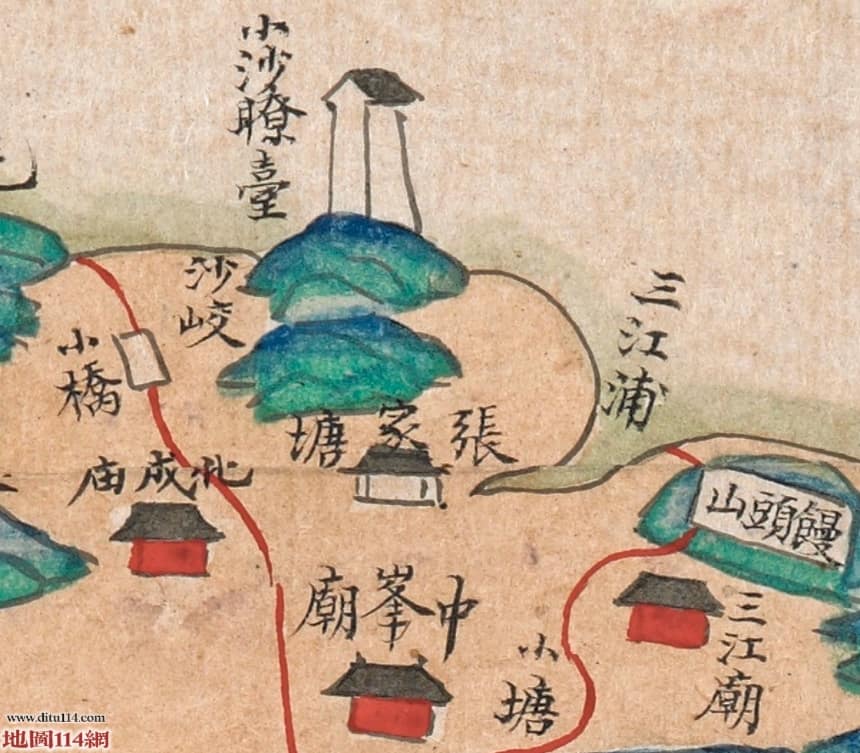 小沙瞭臺
沙峧
三江浦
小橋
張家塘
北成庙
饅頭山
中峯廟
三江廟
小塘
www.ditu114.com
地圖114網